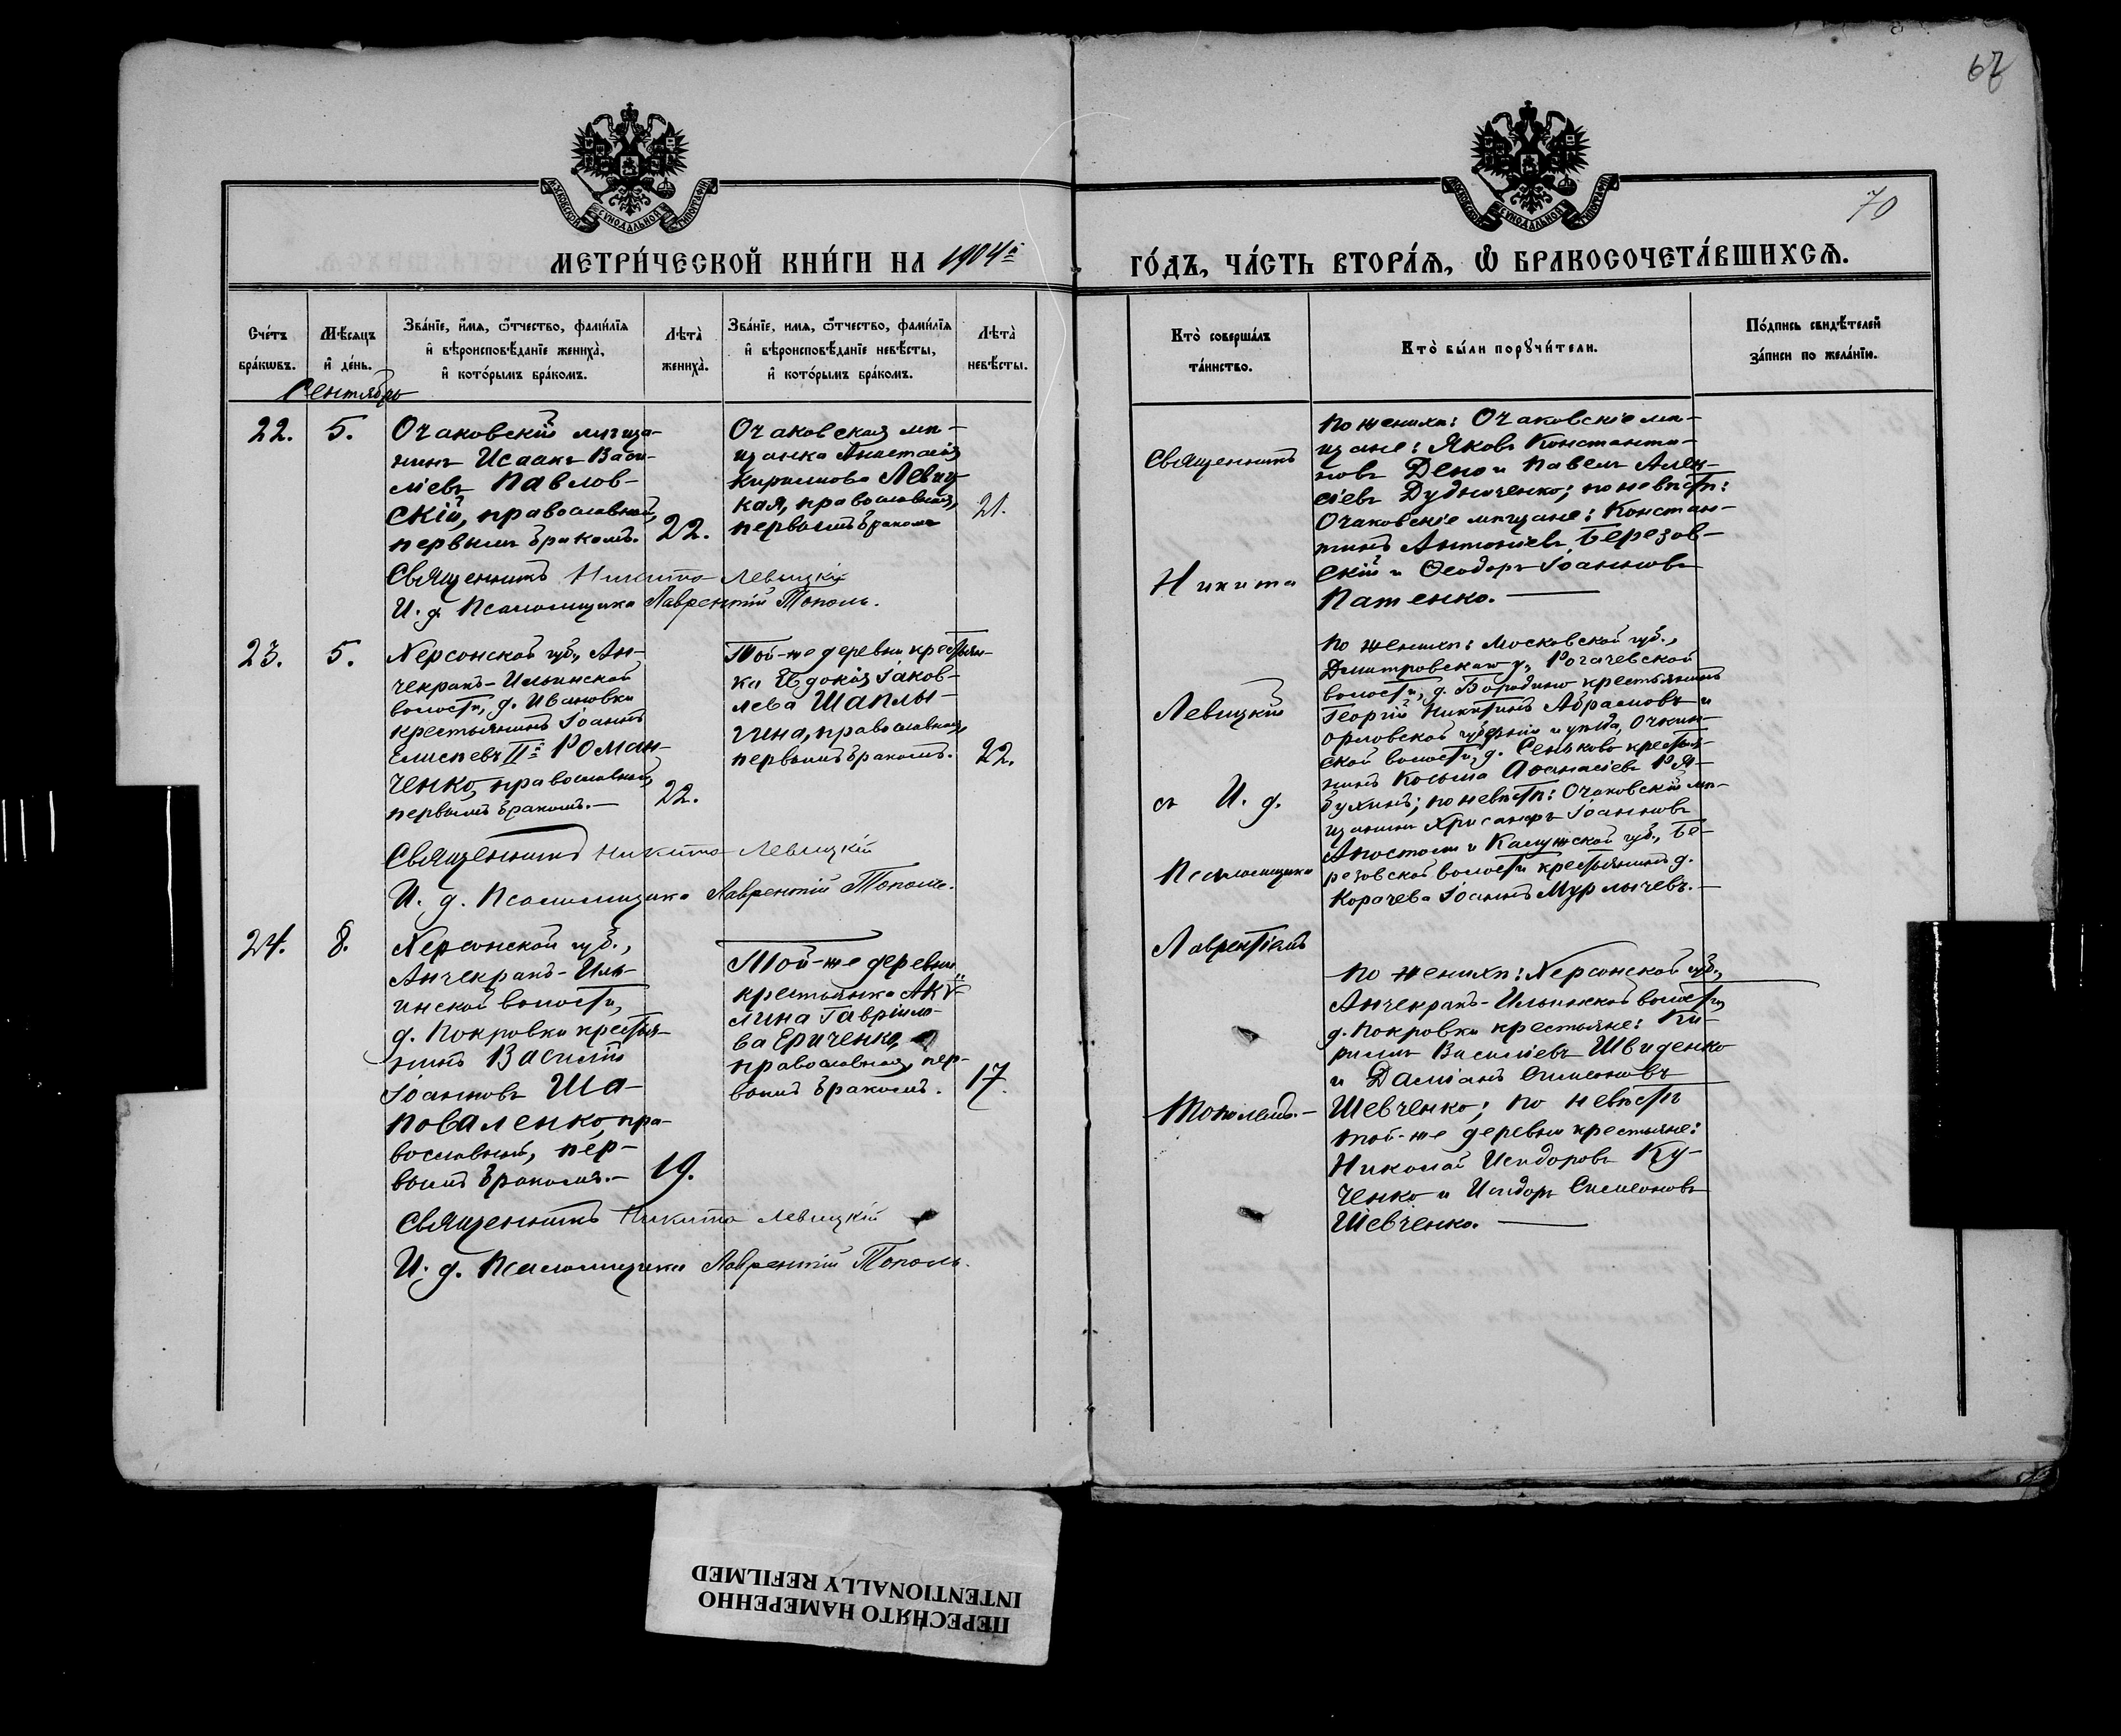 67
70
МОСКОВСКОЙ СѴНОДАЛЬНОЙ ТИПОГРАФІИ
МОСКОВСКОЙ СѴНОДАЛЬНОЙ ТИПОГРАФІИ
МЕТРИ́ЧЕСКОЙ КНИ́ГИ НА 1904й
ГО́ДЪ, ЧА́СТЬ ВТОРА́Я, Ѡ БРАКОСОЧЕТА́ВШИХСѦ.
Сче́тъ
бра́кѡвъ.
Мѣ́сяцъ
и҆ де́нь.
Зва́нїе, и҆́мя, ѻ҆́тчество, фами́лїя
и҆ вѣроисповѣ́данїе жениха̀,
и҆ кото́рымъ бра́комъ.
Лѣта̀
жениха̀.
Зва́нїе, имя, ѻ҆́тчество, фами́лїя
и҆ вѣроисповѣ́данїе невѣ́сты,
и҆ кото́рымъ бра́комъ.
Лѣта̀
невѣ́сты.
Кто̀ соверша́лъ
та́инство.
Кто̀ бы́ли порꙋчи́тели.
По́дпись свидѣ́телей
за́писи по жела́нїю.
Сентябрь
22.
5.
Очаковскій мѣща-
нинъ Исаакъ Васи-
ліевъ Павлов-
скій, православный,
первымъ бракомъ.
22.
Очаковская мѣ-
щанка Анастасія
Кириллова Левиц-
кая, православная,
первымъ бракомъ
21.
Священникъ Никита Левицкій
И. д. Псаломщика Лаврентій Тополь.
23.
5.
Херсонской губ., Ан-
чекракъ-Ильинской
волости, д. Ивановки
крестьянинъ Іоаннъ
Елисеевъ IIй Роман-
ченко, православный,
первымъ бракомъ.—
22.
Той-же деревни крестьян-
ка Евдокія Іаков-
лева Шаплы-
гина, православная,
первымъ бракомъ.
22.
Священникъ Никита Левицкій
И. д. Псаломщика Лаврентій Тополь.
24.
8.
Херсонской губ.,
Анчекракъ-Иль-
инской волости,
д. Покровки крестья-
нинъ Василій
Іоанновъ Ша-
поваленко, пра-
вославный, пер-
вымъ бракомъ.—
19.
Той-же деревни
крестьянка Акѵ-
лина Гавріило-
ва Ериченко,
православная, пер-
вымъ бракомъ.
17.
Священникъ Никита Левицкій
И. д. Псаломщика Лаврентій Тополь.
Священникъ
Никита
Левицкій
съ И. д.
Псаломщика
Лаврентіемъ
Тополемъ.—
По женихѣ: Очаковскіе мѣ-
щане: Яковъ Константи-
новъ и Павелъ Алек-
сіевъ Дудниченко; по невѣстѣ:
Очаковскіе мѣщане: Констан-
тинъ Антоніевъ Березов-
скій и Ѳеодоръ Іоанновъ
Патенко.—
По женихѣ: Московской губ.,
Дмитровскаго у., Рогачевской
волости, д. Бородино крестьянинъ
Георгій Никитинъ Абрамовъ и
Орловской губерніи и уѣзда,
ской волости, д. Сеньково крестья-
нинъ Косьма Аѳанасіевъ Ря-
бухинъ; по невѣстѣ: Очаковскій мѣ-
щанинъ Хрисанфъ Іоанновъ
Апостолъ и Калужской губ., Бе-
резовской волости крестьянинъ д.
Корачева Іоаннъ Мурлычевъ.—
По женихѣ: Херсонской губ.,
Анчекракъ-Ильинской волости,
д. Покровки крестьяне: Ки-
риллъ Василіевъ Швиденко
и Даміанъ Симеоновъ
Шевченко; по невѣстѣ
той-же деревни крестьяне:
Николай Исидоровъ Ку-
ченко и Исидоръ Симеоновъ
Шевченко.—
ПЕРЕСНЯТО НАМЕРЕННО
INTENTIONALLY REFILMED